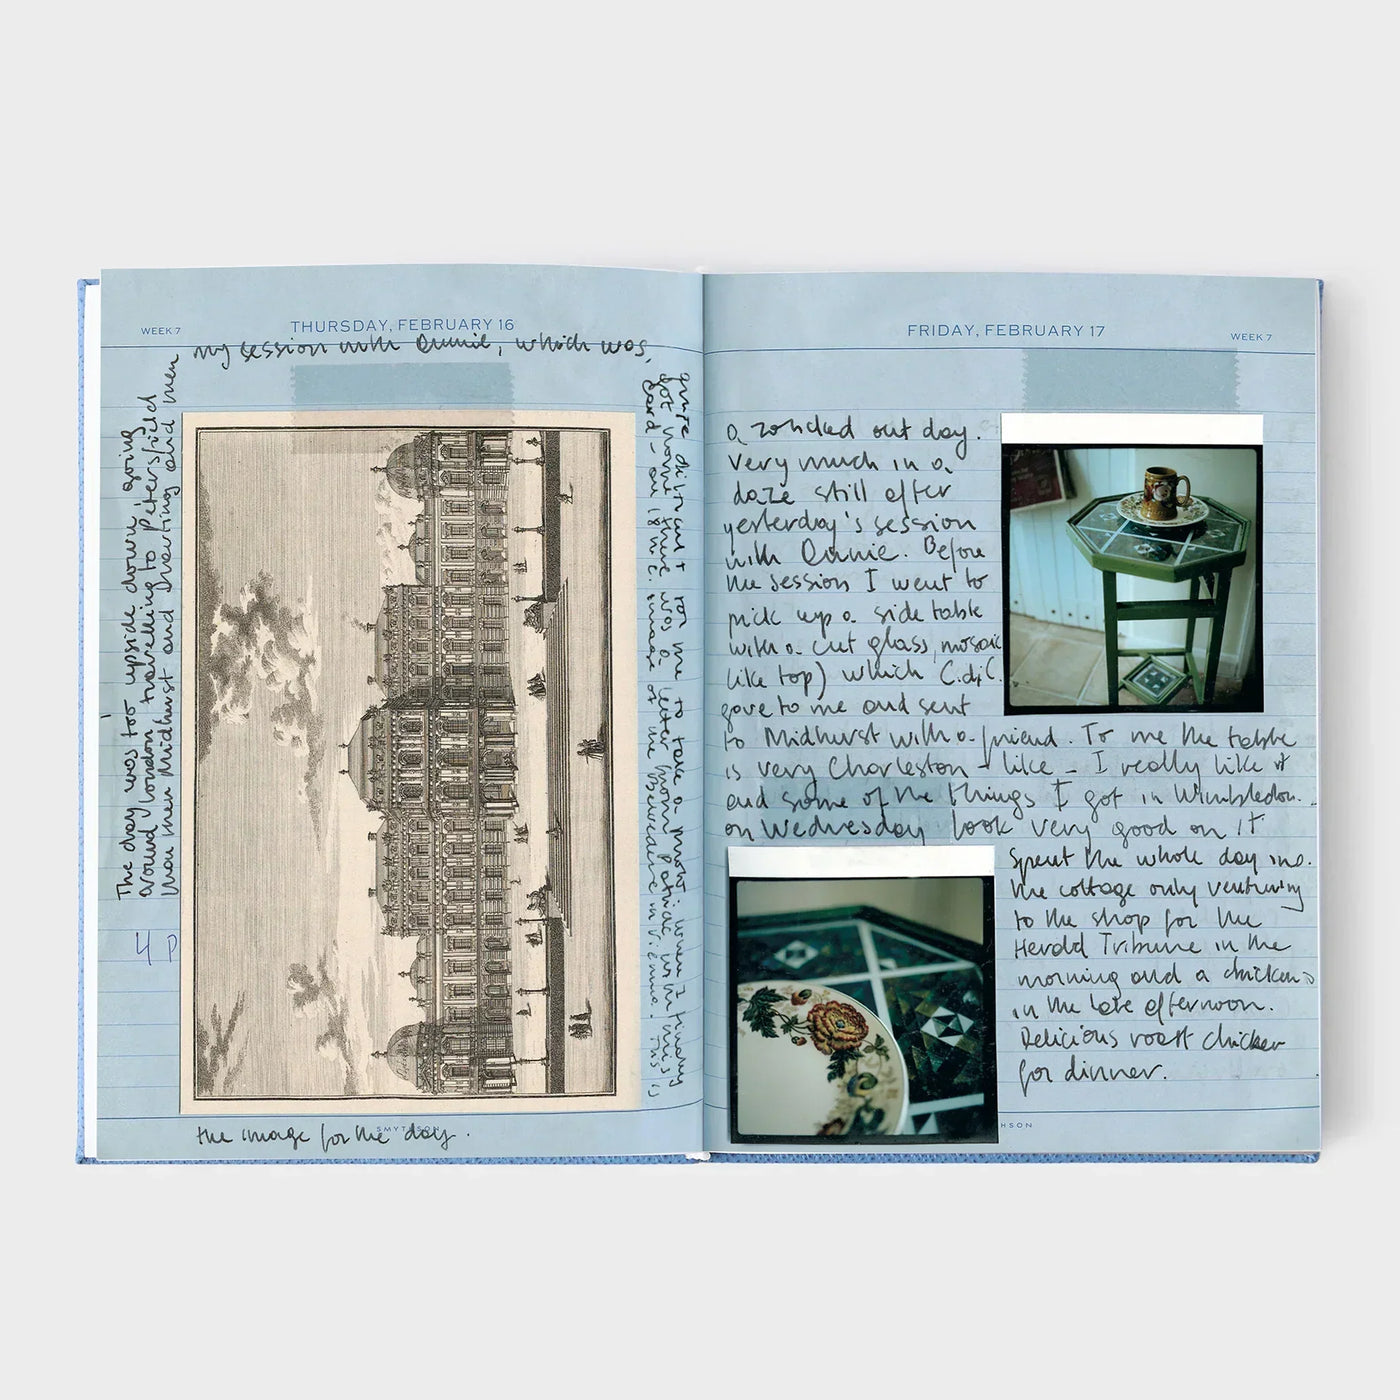 WEEK 7
THURSDAY, FEBRUARY 16
The day was too upside down, going
around London travelling to Petersfield
then Midhurst and and then
my session with which was,
quite difficult for me to take a photo. When I finally
got home there was a letter from Patrick, with this
card - an 18th C. image of the Belvedere in Vienna. This is
the image for the day.
4 P
SMYTHSON
FRIDAY, FEBRUARY 17
WEEK 7
a zonked out day.
Very much in a
daze still after
yesterday's session
with Before
the session I went to
pick up a side table
with a cut glass, mosaic
like top) which C.d.C.
gave to me and sent
to Midhurst with a friend. To me the table
is very Charleston - like - I really like it
and some of the things I got in Wimbledon
on Wednesday look very good on it
Spent the whole day in
the cottage only venturing
to the shop for the
Herald Tribune in the
morning and a chicken
in the late afternoon.
Delicious roast chicken
for dinner.
HSON